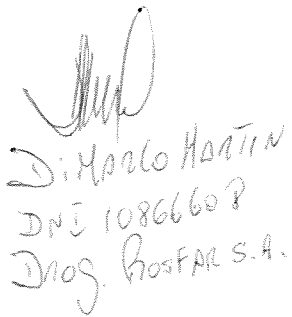 DiMarco Martin
DNI 10866608
Drog. Rosfar S.A.